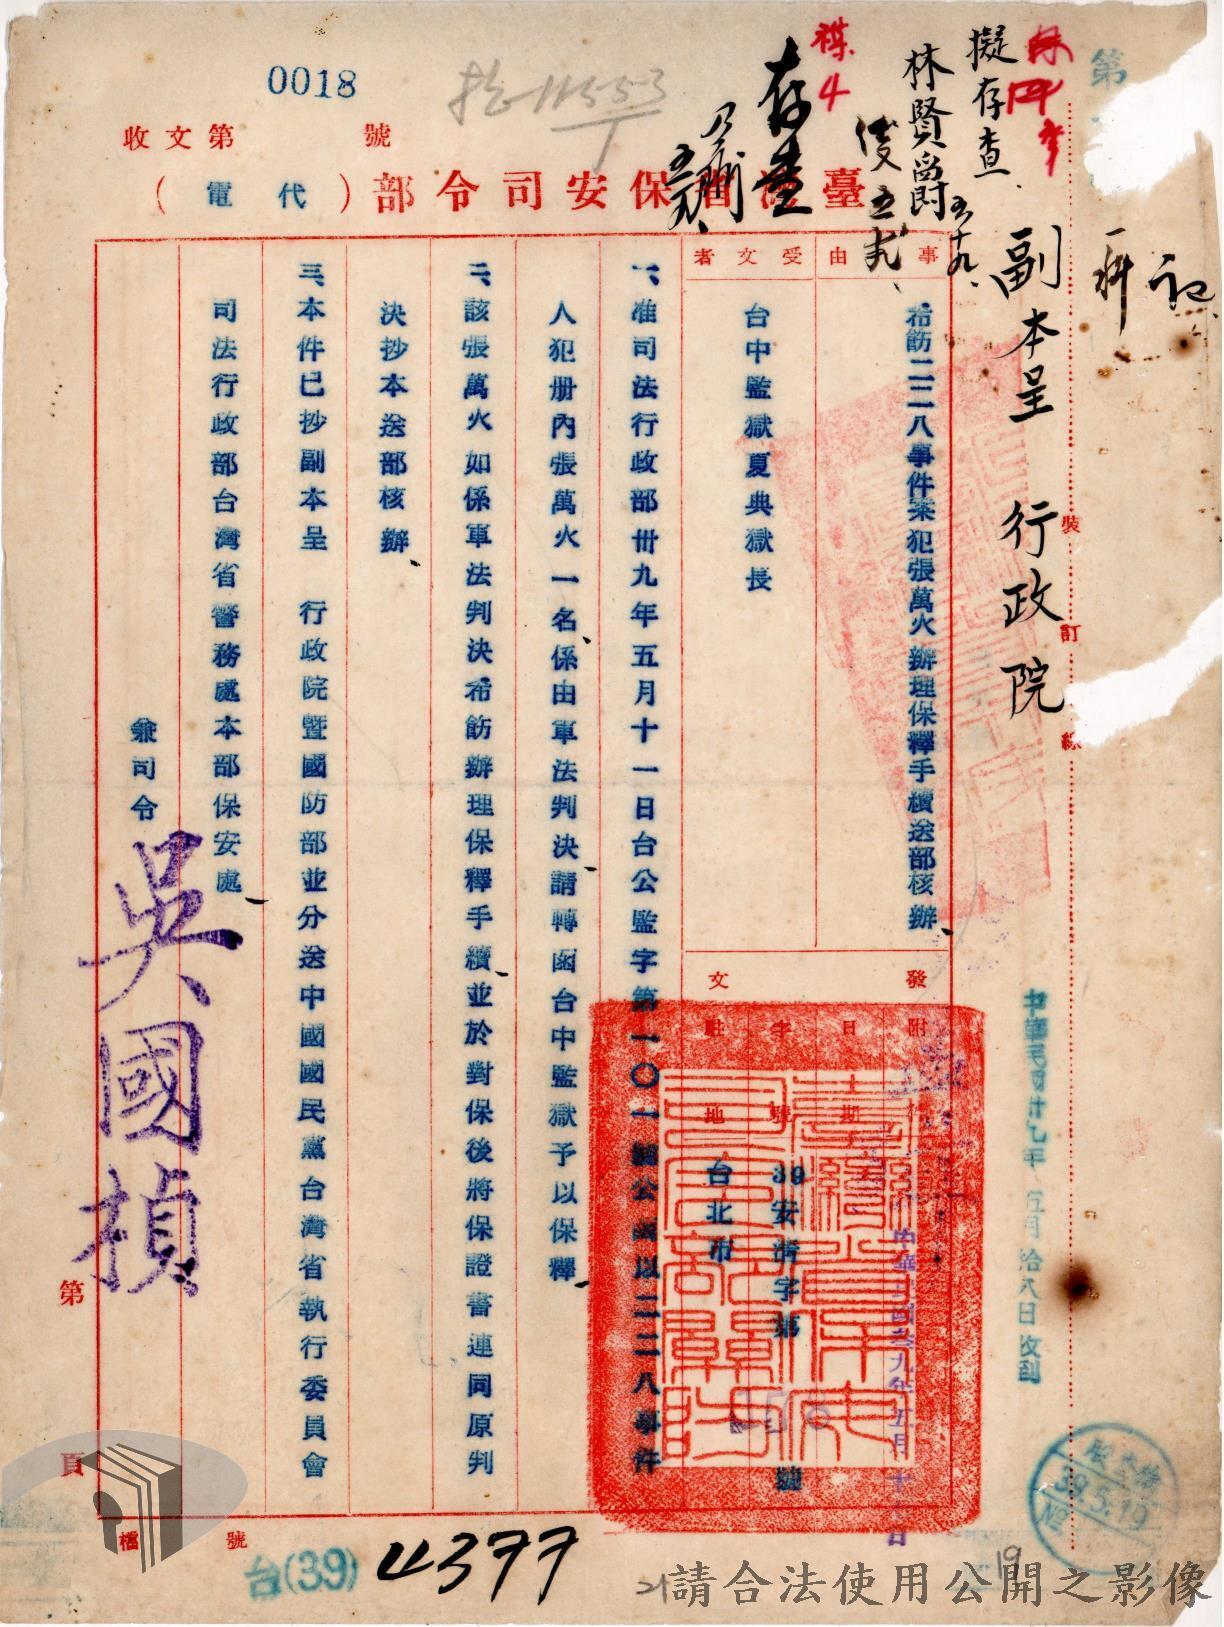 0018
收文第　　號
臺灣省保安司令部（代電）
副本呈　行政院
擬存查
林賢爵
五十九
存查
事由
希飭二二八事件案犯張萬火辦理保釋手續送部核辦、
受文者
台中監獄夏典獄長
發文
附件
日期
字號
39安清字第　　號
駐地
台北市
一、准司法行政部卅九年五月十一日台公監字第一〇一號公函以二二八事件
人犯册內張萬火一名、係由軍法判決、請轉函台中監獄予以保釋、
二、該張萬火如係軍法判決希飭辦理保釋手續、並於對保後將保證書連同原判
決抄本送部核辦、
三、本件已抄副本呈　行政院暨國防部並分送中國國民黨台灣省執行委員會
司法行政部台灣省警務處本部保安處、
兼司令
吳國楨
中華民國卅九年五月拾八日收到
裝訂線
第　頁
檔號
台(39) 4377
39.5.19
№
19
21
請合法使用公開之影像